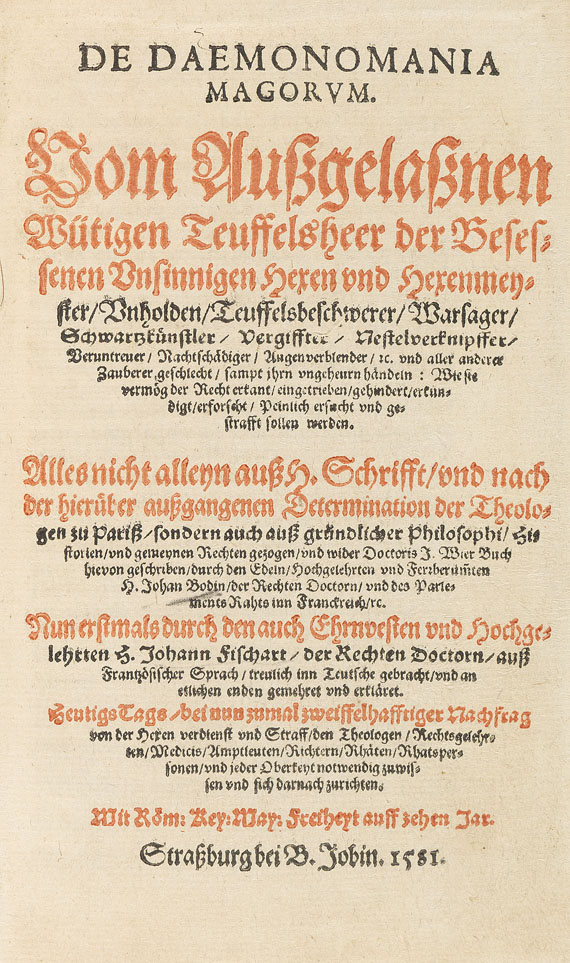 DE DAEMONOMANIA
MAGORVM.
Vom Außgelaßnen
Wütigen Teuffelsheer der Beses-
senen Vnsinnigen Hexen vnd Hexenmey-
ster/Vnholden/Teuffelsbeschwerer/Warsager/
Schwartzkünstler/ Vergiffter/ Nestelverknipffer/
Veruntreuer/ Nachtschädiger/ Augenverblender/ ꝛc. vnd aller anderer
Zauberer geschlecht/ sampt jhrn vngeheurn händeln: Wie sie
vermög der Recht erkant/eingetrieben/gehindert/erkun-
digt/erforscht/ Peinlich ersucht vnd ge-
strafft sollen werden.
Alles nicht alleyn auß H. Schrifft/vnd nach
der hierüber außgangenen Determination der Theolo-
gen zu Pariß/sondern auch auß gründlicher Philosophi/ His
storien/vnd gemeynen Rechten gezogen/vnd wider Doctoris J. Wier Buch
hievon geschriben/durch den Edeln/Hochgelehrten vnd Fernberümten
H. Johan Bodin/der Rechten Doctorn/vnd des Parle-
ments Rahts inn Franckreich/ꝛc.
Nun erstmals durch den auch Ehrnvesten vnd Hochge-
lehrten H. Johann Fischart/der Rechten Doctorn/auß
Frantzösischer Sprach/treulich inn Teutsche gebracht/vnd an
etlichen enden gemehret vnd erkläret.
Heutigs Tags/bei nun zumal zweiffelhafftiger Nachfrag
von der Hexen verdienst vnd Straff/den Theologen/Rechtsgelehr-
ten/Medicis/Amptleuten/Richtern/Rhäten/Rhatsper-
sonen/vnd jeder Oberkeyt notwendig zuwis-
sen vnd sich darnach zurichten.
Mit Röm: Key: May: Freiheyt auff zehen Jar.
Straßburg bei B. Jobin. 1581.